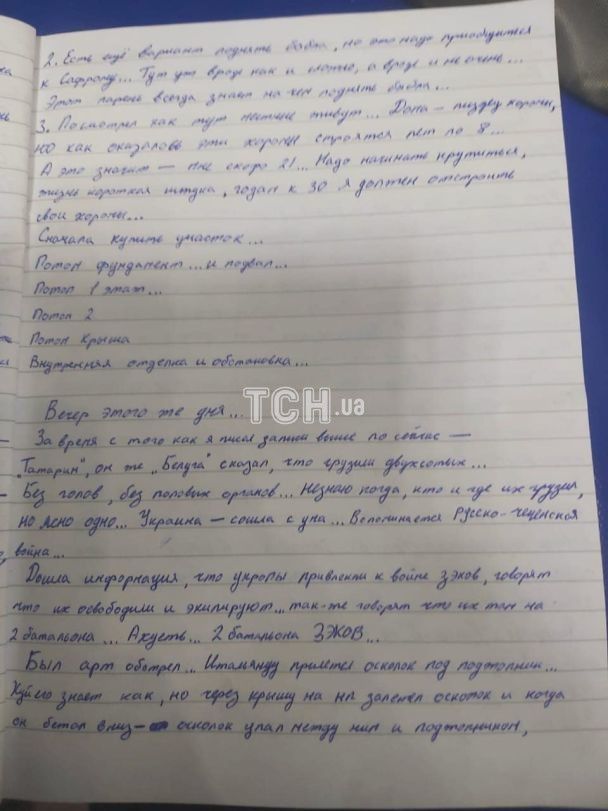 2. Есть ещё вариант поднять бабла, но это надо приобщиться
к Сафрону... Тут уж вроде как и стёпно, а вроде и не очень...
Этот парень всегда знает на чём поднять бабла...
3. Посмотрел как тут местные живут... Дома — пиздец хоромы,
но как оказалось эти хоромы строятся лет по 8...
А это значит — мне скоро 21... Надо начинать крутиться,
жизнь короткая штука, годам к 30 я должен отстроить
свои хоромы...
Сначала купить участок...
Потом фундамент... и подвал...
Потом 1 этаж...
Потом 2
Потом крыша
Внутренняя отделка и обстановка...
Вечер этого же дня...
ТСН.ua
За время с того как я писал записи выше по сейчас —
"Татарин", он же "Белуга" сказал, что грузили двухсотых...
Без голов, без половых органов... незнаю когда, кто и где их грузил,
но ясно одно... Украина — сошла с ума... Вспоминается Русско-чеченская
война...
Дошла информация, что укропы привлекли к войне зэков, говорят
что их освободили и экипируют... так-же говорят что их там на
2 батальона... Ахуеть... 2 батальона ЗЭКОВ...
Был арт обстрел... Итальянцу прилетел осколок под поджопник...
Хуй его знает как, но через крышу на нп залетел осколок и когда
он бежал вниз — осколок упал между ним и поджопником,